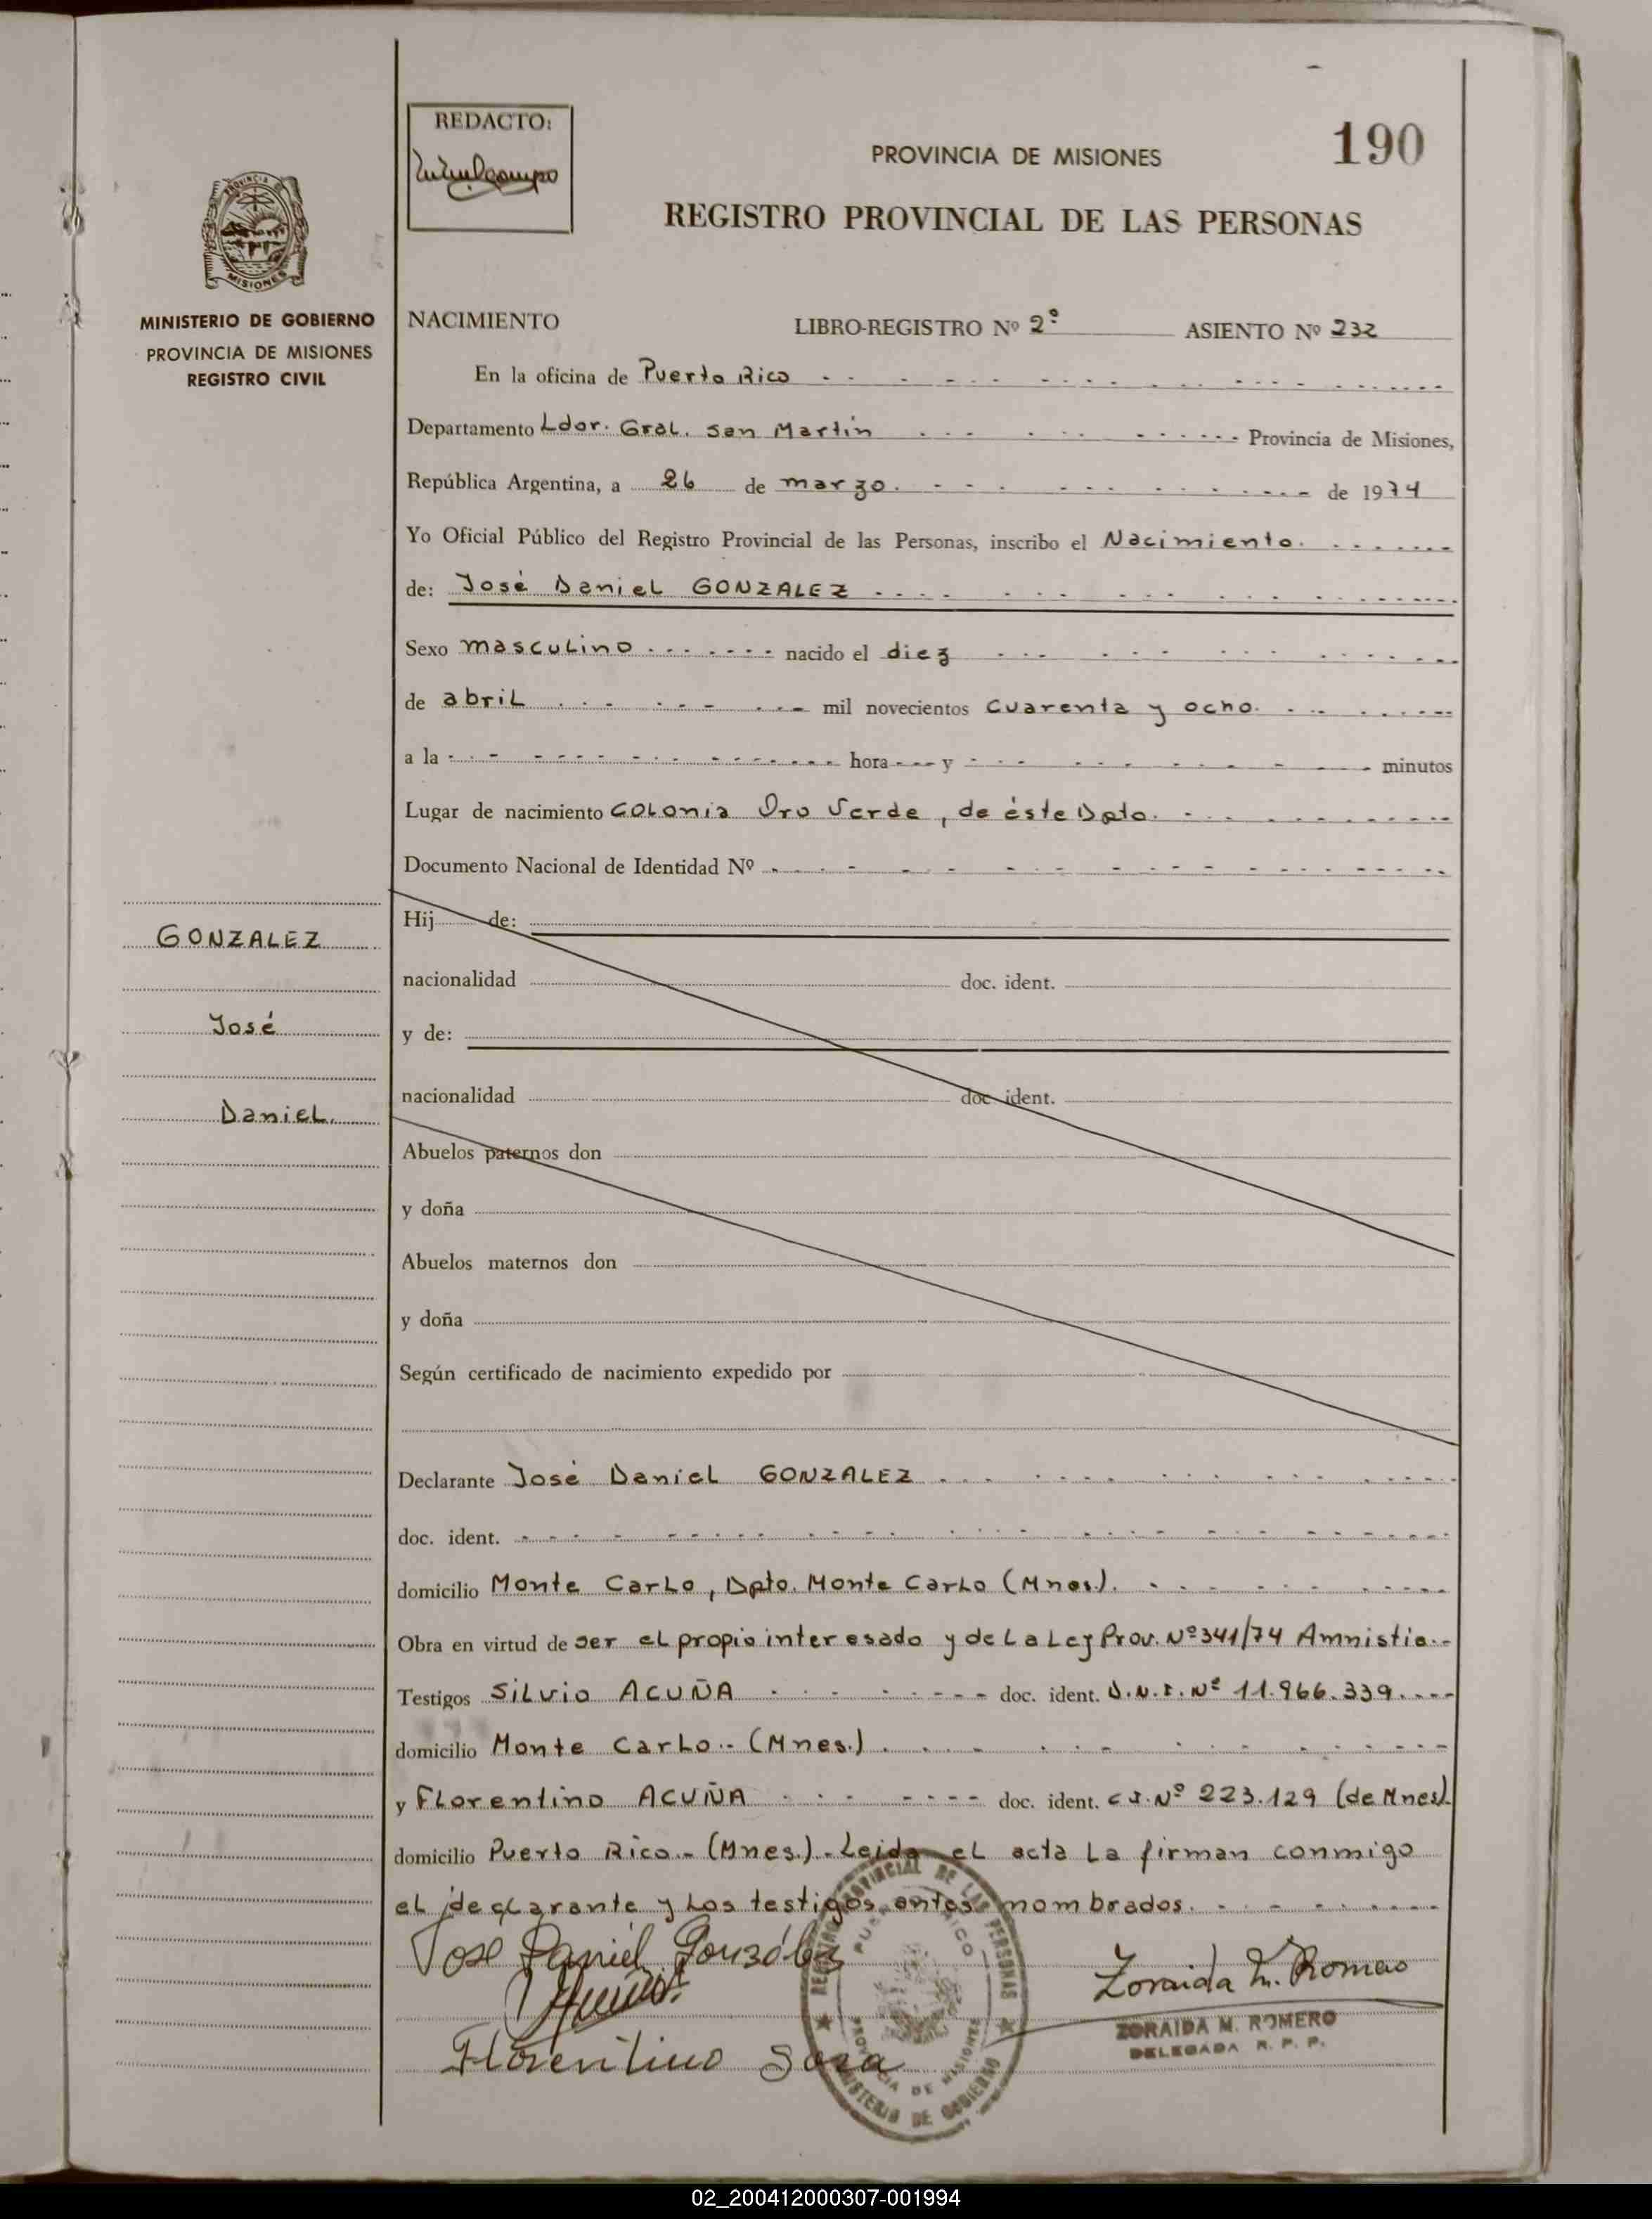 REDACTO:
190
PROVINCIA DE MISIONES
REGISTRO PROVINCIAL DE LAS PERSONAS
PROVINCIA DE
MISIONES
MINISTERIO DE GOBIERNO
PROVINCIA DE MISIONES
REGISTRO CIVIL
NACIMIENTO LIBRO-REGISTRO Nº 2º ASIENTO Nº 232
En la oficina de Puerto Rico
Departamento Ldor. Gral. San Martin Provincia de Misiones,
República Argentina, a 26 de marzo. de 1974
Yo Oficial Público del Registro Provincial de las Personas, inscribo el Nacimiento.
de: José Daniel GONZALEZ
Sexo masculino nacido el diez
de abril mil novecientos cuarenta y ocho.
a la hora y minutos
Lugar de nacimiento Colonia Oro Verde, de éste Dpto.
Documento Nacional de Identidad Nº
GONZALEZ
José
Daniel.
Hij de:
nacionalidad doc. ident.
y de:
nacionalidad doc ident.
Abuelos paternos don
y doña
Abuelos maternos don
y doña
Según certificado de nacimiento expedido por
Declarante José Daniel GONZALEZ
doc. ident.
domicilio Monte Carlo, Dpto. Monte Carlo (Mnes).
Obra en virtud de ser el propio interesado y de La Ley Prov. Nº 341/74 Amnistia.-
Testigos Silvio ACUÑA doc. ident. D.N.I. Nº 11.966.339.
domicilio Monte Carlo.- (Mnes.)
y Florentino ACUÑA doc. ident. C.I. Nº 223.129 (de Mnes).
domicilio Puerto Rico.- (Mnes.).- Leida el acta La firman conmigo
el declarante y Los testigos antes nombrados.
Jose Daniel Gonzélez
Zoraida M. Romero
ZORAIDA M. ROMERO
DELEGADA R. P. P.
Florentino Sosa
REGISTRO PROVINCIAL DE LAS PERSONAS
PUERTO RICO
PROVINCIA DE MISIONES
MINISTERIO DE GOBIERNO
02_200412000307-001994